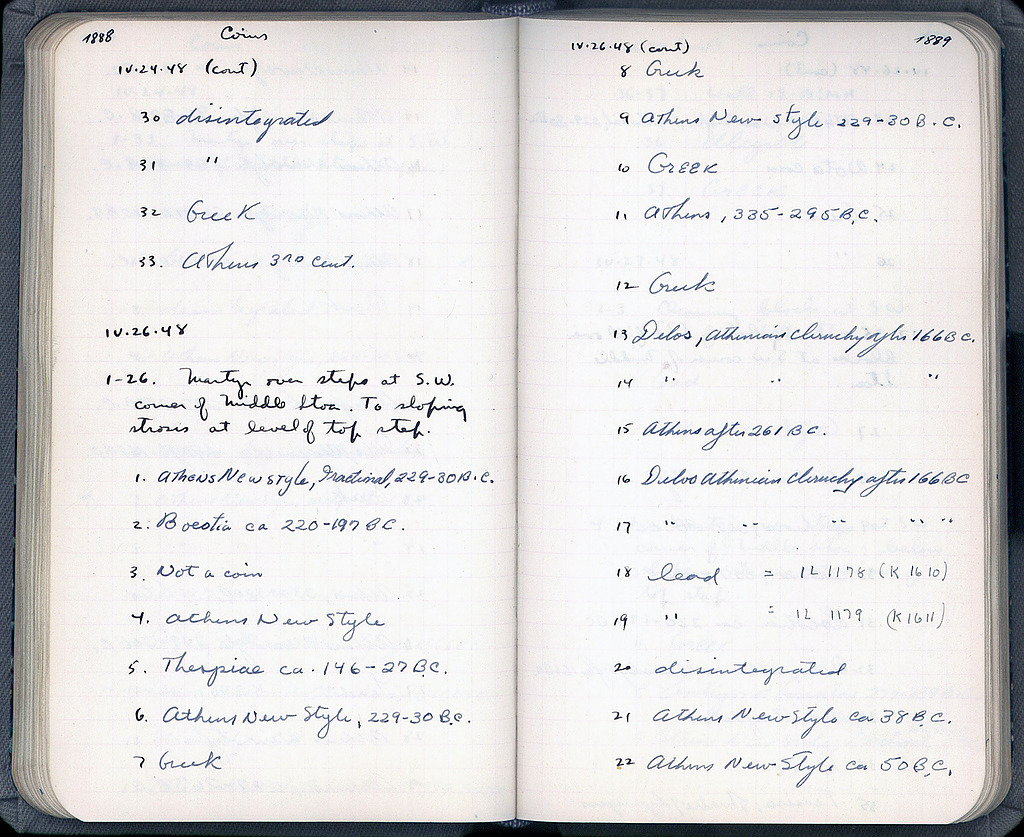 1888
Coins
IV.24.48 (cont)
30 disintegrated
31 "
32 Greek
33. Athens 3rd cent.
IV.26.48
1-26. Martyn over steps at S.W.
corner of Middle Stoa. To sloping
strosis at level of top step.
1. Athens New style, fractional, 229-30 B.C.
2. Boeotia ca 220-197 BC.
3. Not a coin
4. Athens New Style
5. Thespiae ca. 146-27 B.C.
6. Athens New Style, 229-30 B.C.
7 Greek
1889
IV.26.48 (cont)
8 Greek
9 Athens New style 229-30 B.C.
10 GREEK
11 Athens, 335-295 B.C.
12 Greek
13 Delos, Athenian cleruchy after 166 B.C.
14 " " "
15 Athens after 261 B.C.
16 Delos Athenian cleruchy after 166 BC
17 " " " " "
18 lead = IL 1178 (K 1610)
19 " = IL 1179 (K1611)
20 disintegrated
21 Athens New Style ca 38 B.C.
22 Athens New Style ca 50 B.C.